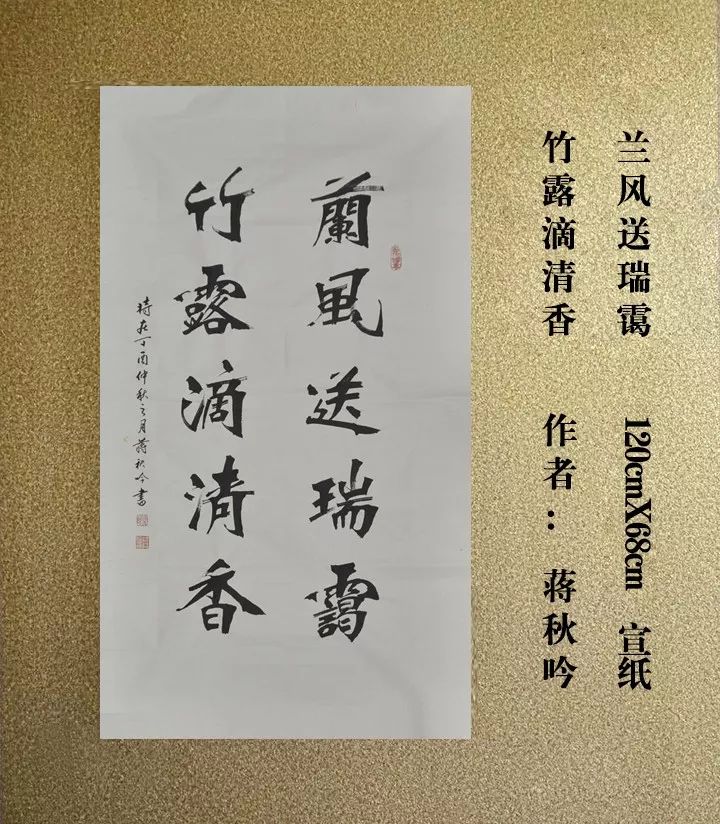 兰风送瑞霭 120cmX68cm 宣纸
竹露滴清香 作者：蒋秋吟
蘭風送瑞靄
竹露滴清香
時在丁酉仲秋之月蒋秋吟書